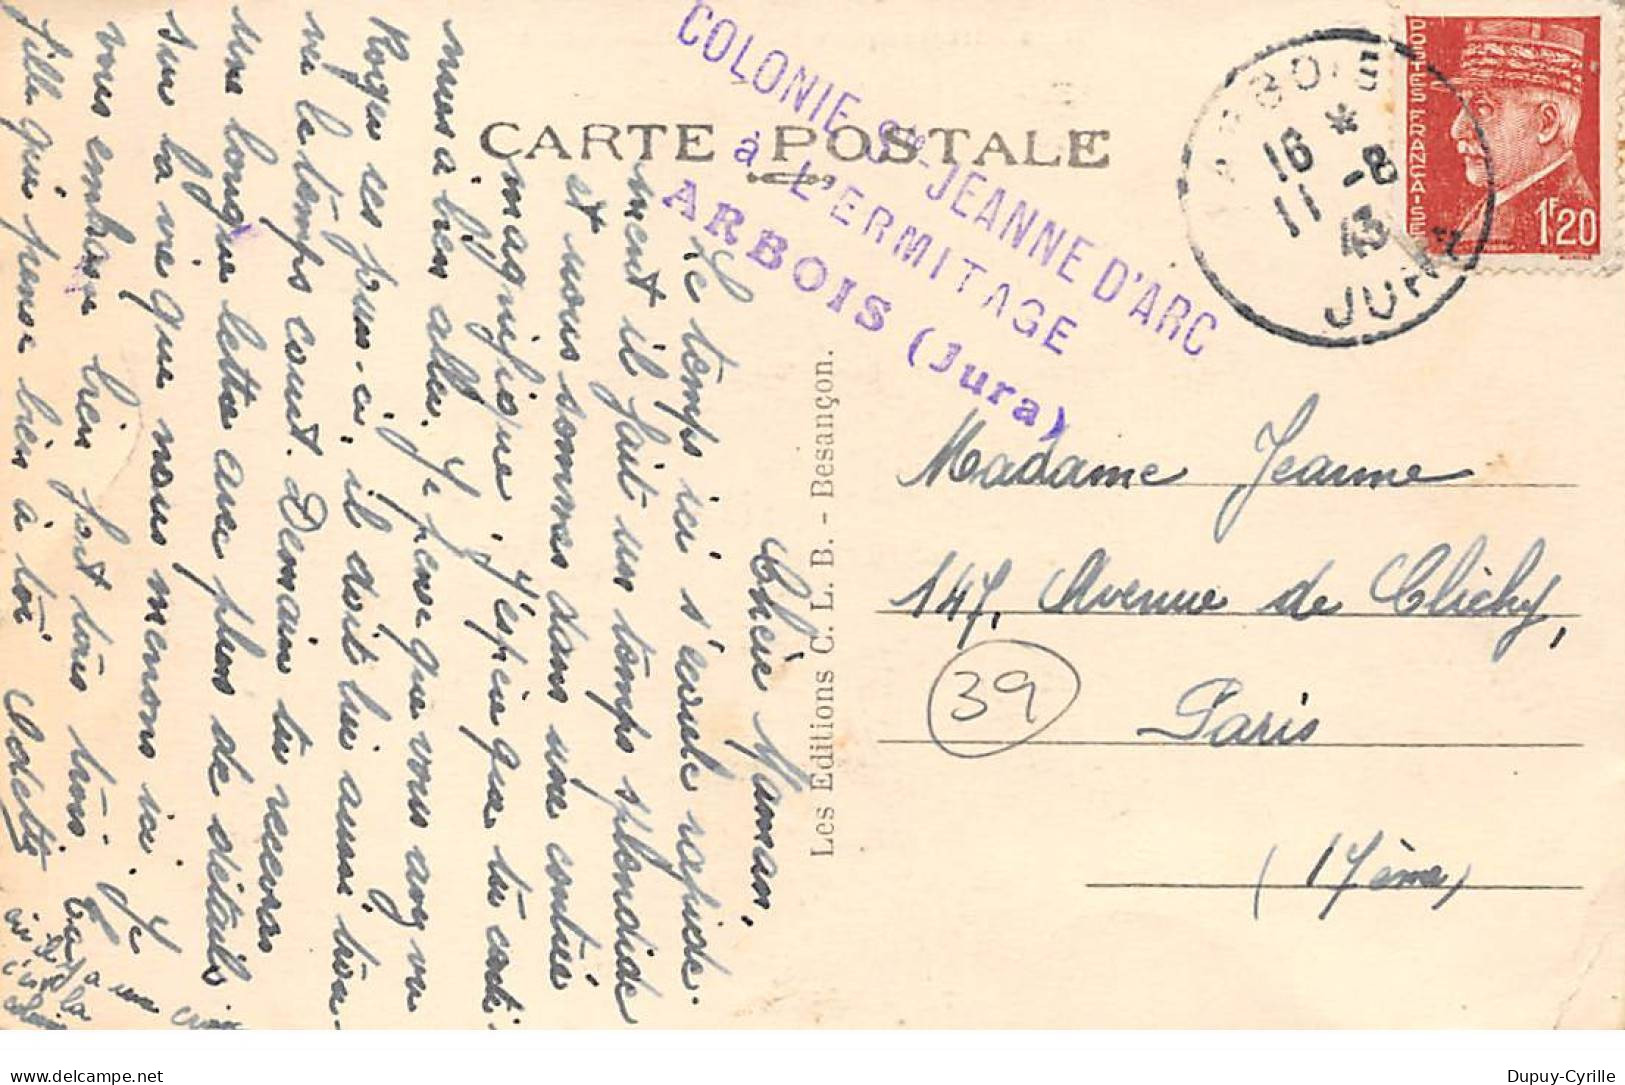 CARTE POSTALE
COLONIE Ste-JEANNE D'ARC
à L'ERMITAGE
ARBOIS (Jura)
ARBOIS
16 * 8
11 - 43
JURA
POSTES FRANÇAISES
1F20
Chère Maman,
Le temps ici s'écoule rapide-
ment il fait un temps splendide
et nous sommes dans une contrée
magnifique. J'espère que tu conti-
nues à bien aller. Je pense que vous avez vu
Roger ces jours-ci, il doit lui aussi trou-
ver le temps court. Demain tu recevras
une longue lettre avec plus de détails
sur la vie que nous menons ici. Je
vous embrasse bien fort tous trois
fille qui pense bien à toi Odette
Les Editions C. L. B. - Besançon.
Madame Jeanne
147, Avenue de Clichy,
Paris
(17ème)
39
il y a une croix
c'est la
colonie
delcampe.net
Dupuy-Cyrille